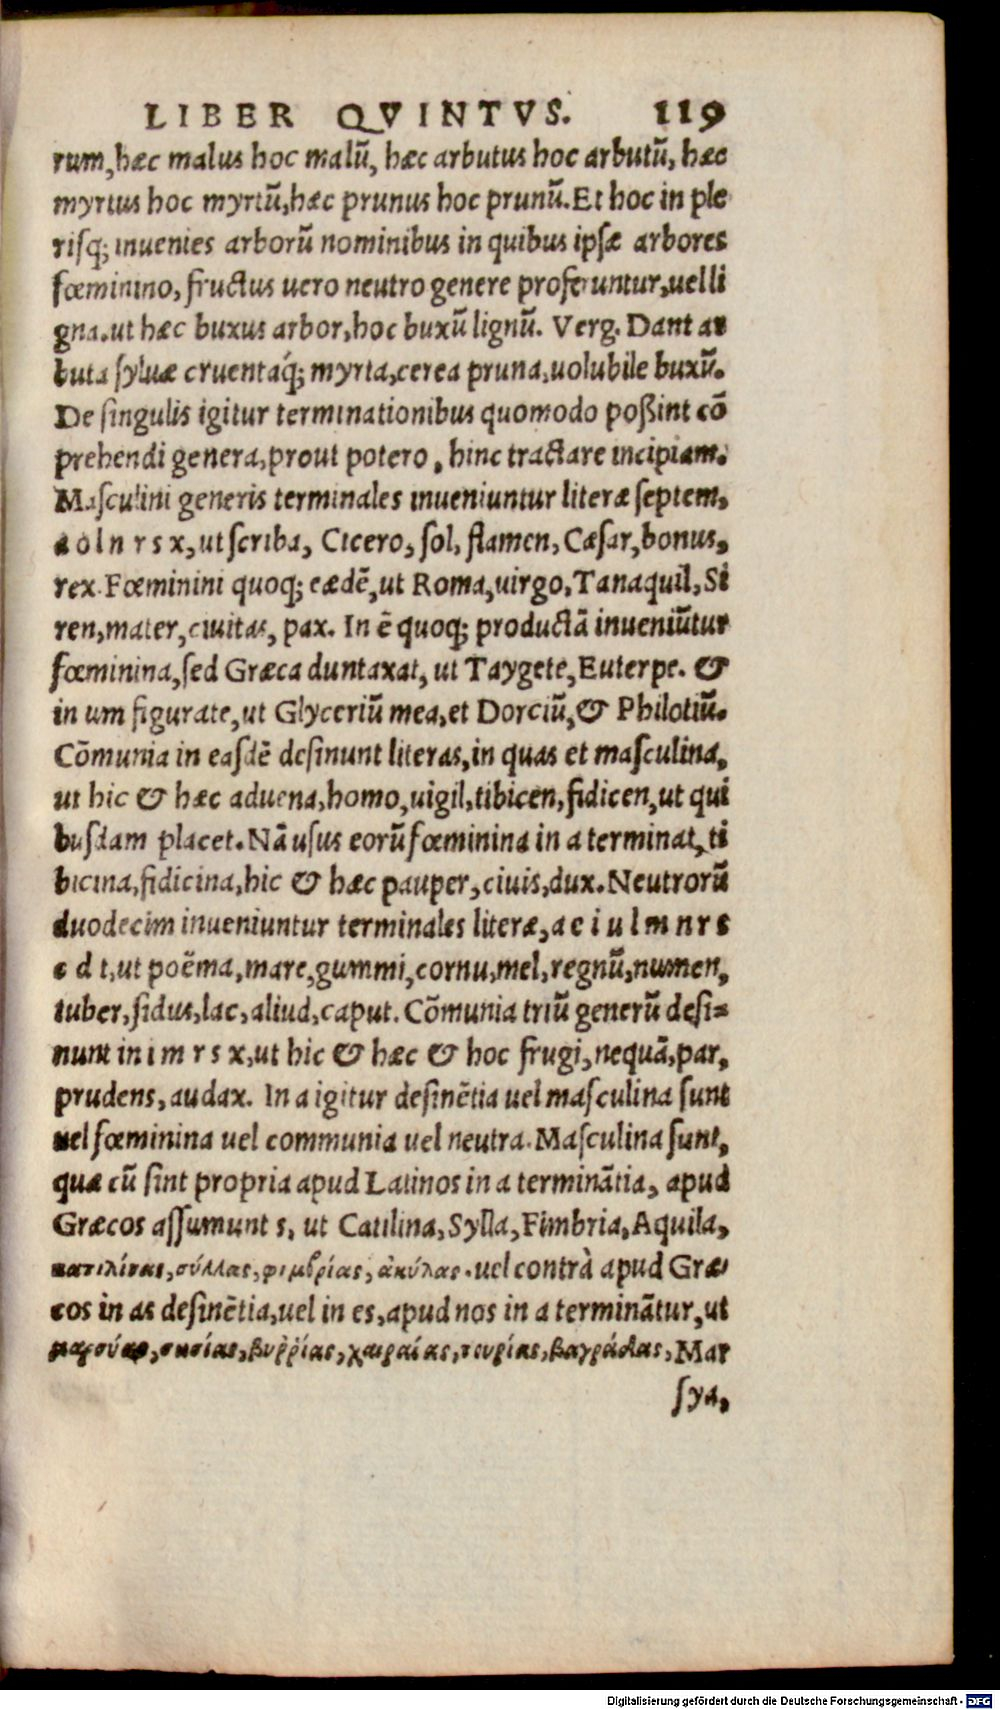 LIBER QVINTVS. 119
rum, hæc malus hoc malũ, hæc arbutus hoc arbutũ, hæc
myrtus hoc myrtũ, hæc prunus hoc prunũ. Et hoc in ple
risq; inuenies arborũ nominibus in quibus ipsæ arbores
fœminino, fructus uero neutro genere proferuntur, uel li
gna. ut hæc buxus arbor, hoc buxũ lignũ. Verg. Dant ar
buta syluæ cruentáq; myrta, cerea pruna, uolubile buxũ.
De singulis igitur terminationibus quomodo poßint cõ
prehendi genera, prout potero, hinc tractare incipiam.
Masculini generis terminales inueniuntur literæ septem,
a o l n r s x, ut scriba, Cicero, sol, flamen, Cæsar, bonus,
rex. Fœminini quoq; eædẽ, ut Roma, uirgo, Tanaquil, Si
ren, mater, ciuitas, pax. In ẽ quoq; productã inueniũtur
fœminina, sed Græca duntaxat, ut Taygete, Euterpe. &
in um figurate, ut Glyceriũ mea, et Dorciũ, & Philotiũ.
Cõmunia in easdẽ desinunt literas, in quas et masculina,
ut hic & hæc aduena, homo, uigil, tibicen, fidicen, ut qui
busdam placet. Nã usus eorũ fœminina in a terminat, ti
bicina, fidicina, hic & hæc pauper, ciuis, dux. Neutrorũ
duodecim inueniuntur terminales literæ, a e i u l m n r s
c d t, ut poëma, mare, gummi, cornu, mel, regnũ, numen,
tuber, sidus, lac, aliud, caput. Cõmunia triũ generũ desi=
nunt in i m r s x, ut hic & hæc & hoc frugi, nequã, par,
prudens, audax. In a igitur desinẽtia uel masculina sunt
uel fœminina uel communia uel neutra. Masculina sunt,
quæ cũ sint propria apud Latinos in a terminãtia, apud
Græcos assumunt s, ut Catilina, Sylla, Fimbria, Aquila,
κατιλίνας, σύλλας, φιμβρίας, ἀκύλας. uel contrà apud Græ
cos in as desinẽtia, uel in es, apud nos in a terminãtur, ut
μαρσύας, σωσίας, βυῤῥίας, χαιρέας, τουρίας, βαγράδας, Mar
sya,
Digitalisierung gefördert durch die Deutsche Forschungsgemeinschaft - DFG